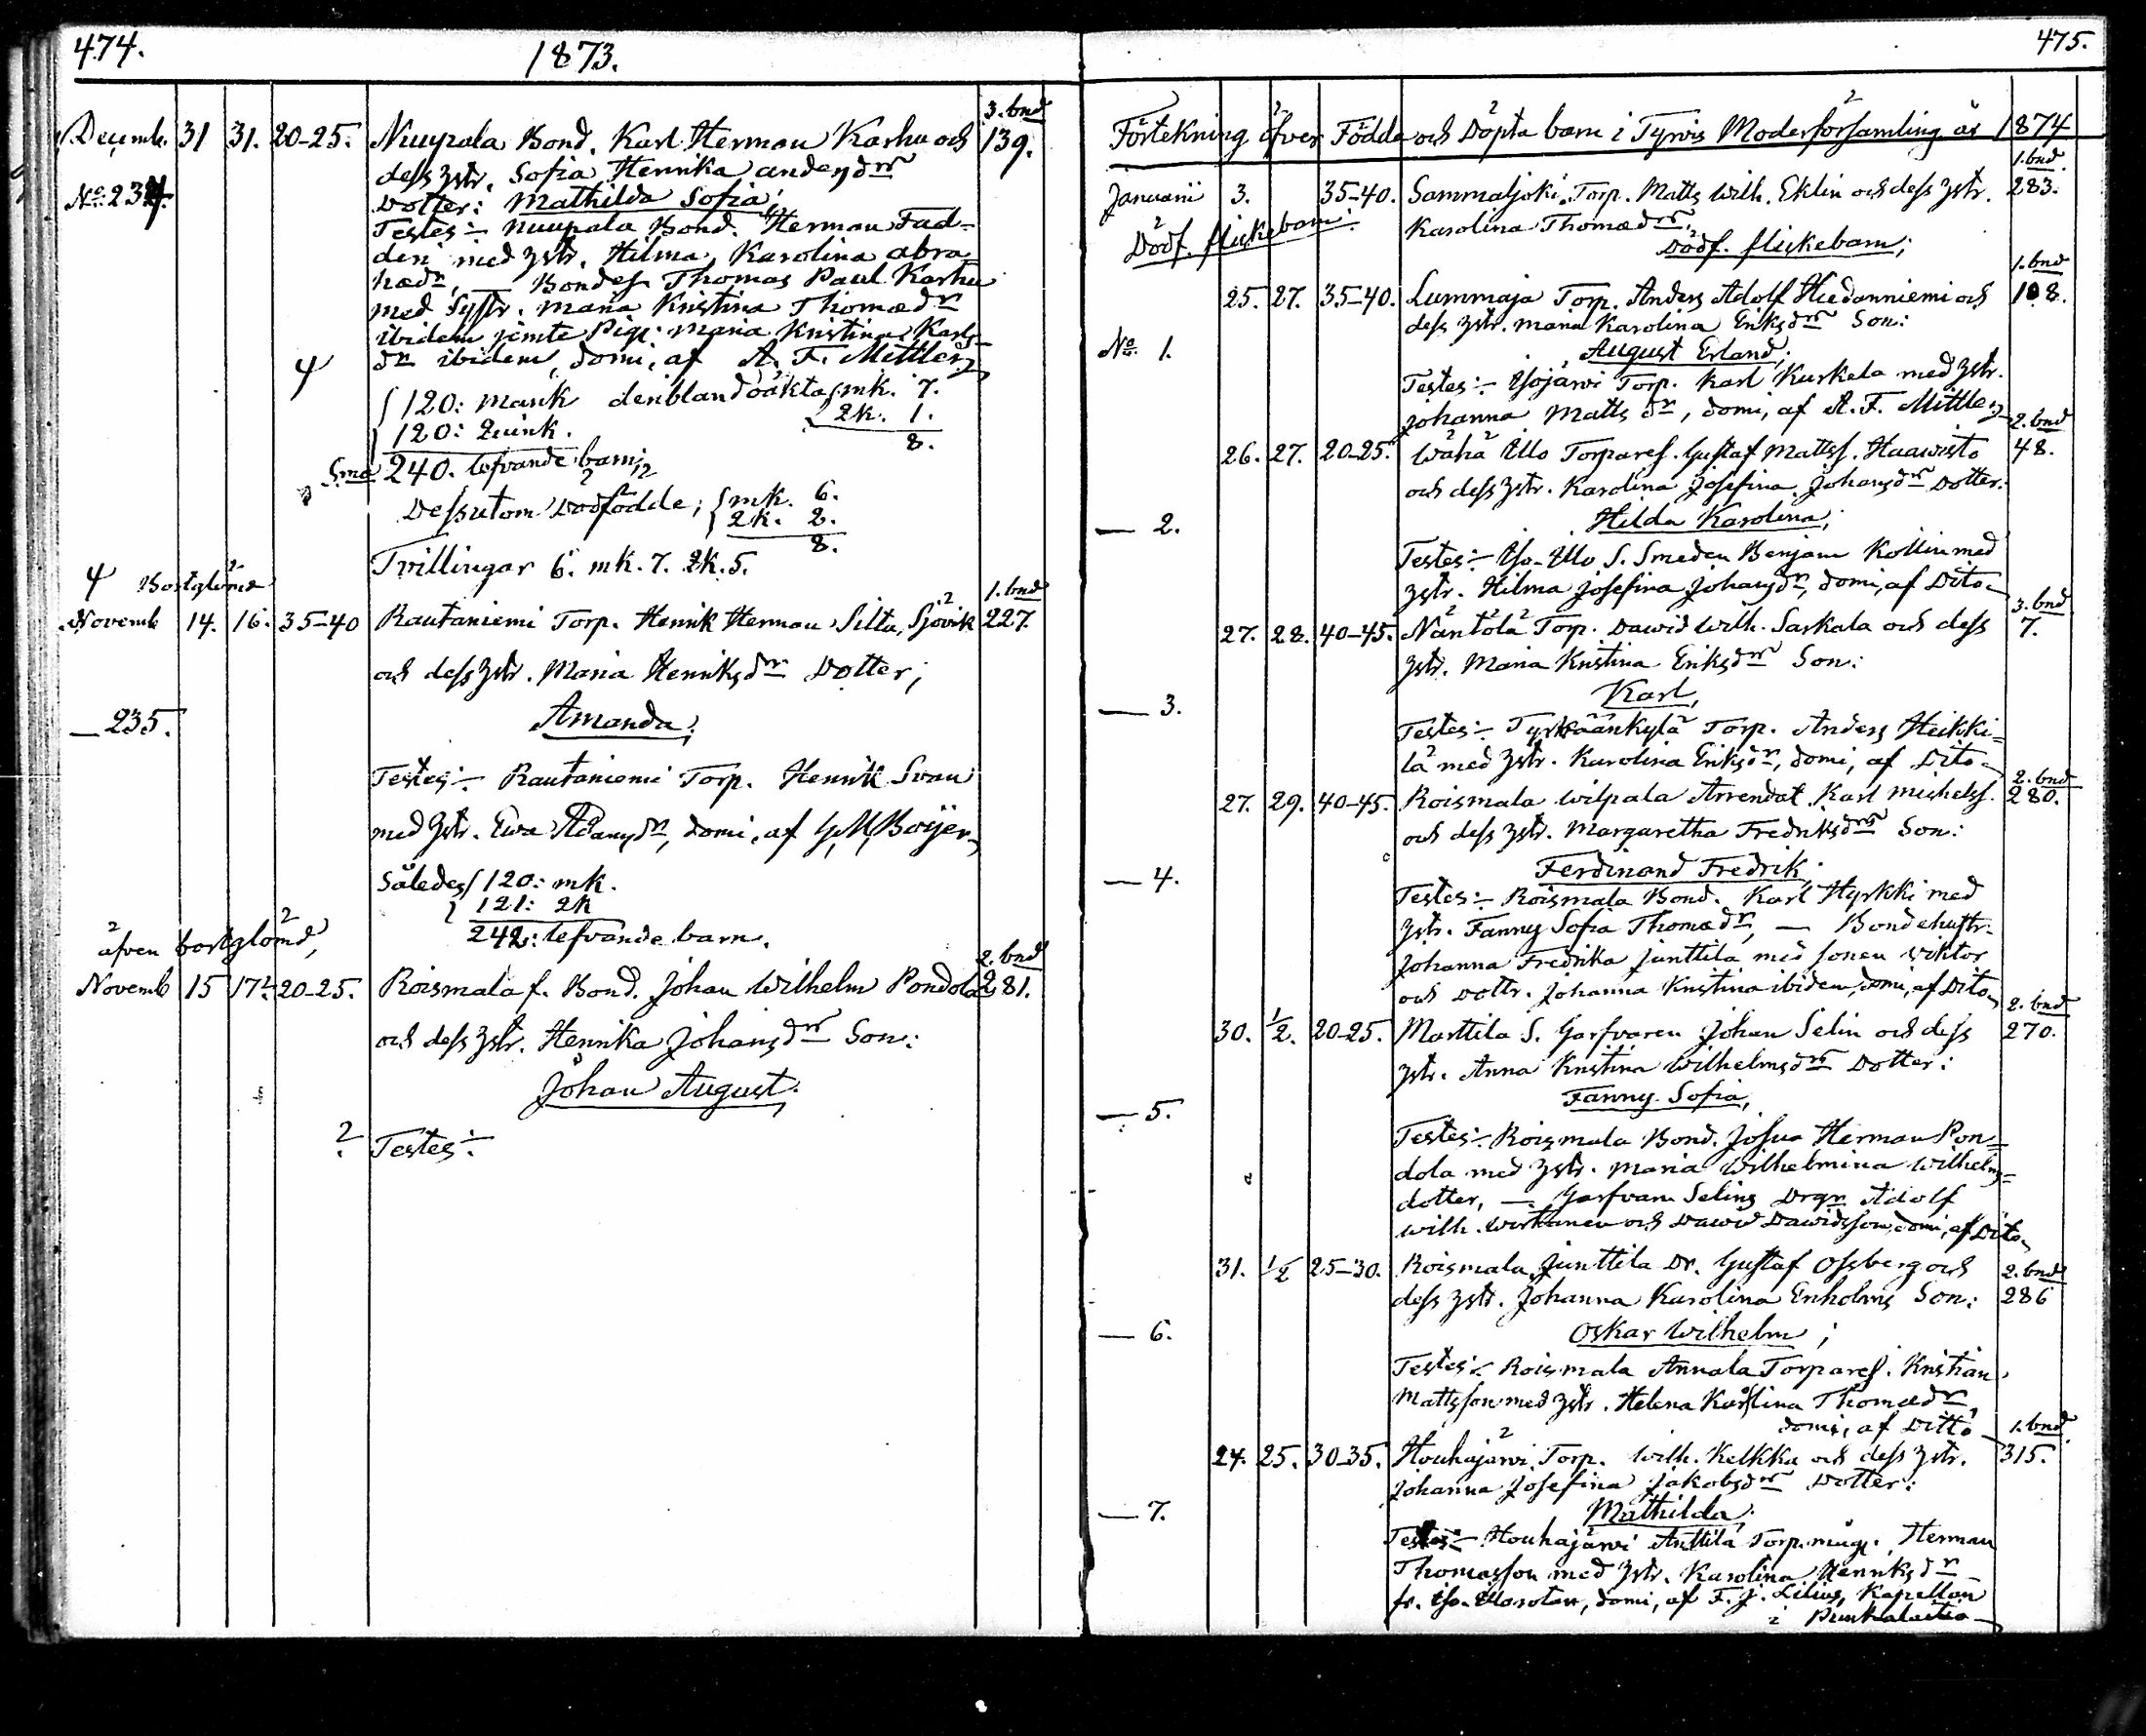 474.
1873.
3. bnd
Decemb. 31 31. 20-25. Nuupala Bond. Karl Herman Karhu och 139.
dess hstr. Sofia Henrika andersdr
No: 234. Dotter: Mathilda Sofia;
Testes:- Nuupala Bond. Herman Fad-
deri med hstr. Hilma Karolina abra-
hædr, — Bondes. Thomas Paul Karhu
med Systr. Maria Kristina Thomædr
ibidem jemte Pig. Maria Kristina Karls-
dr ibidem, domi, af A. F. Mittler
{120: mank denibland oäkta {mk. 7.
120: quink. qk. 1.
8.
Sma 240. lefvande barn;
Dessutom Dödfödde; {mk. 6.
qk. 2.
8.
Tvillingar 6. mk. 7. qk. 5.
Bortglömd 1. bnd
Novemb 14. 16. 35-40 Rautaniemi Torp. Henrik Herman Silta, Sjövik 227.
och dess hstr. Maria Henriksdr Dotter;
— 235. Amanda;
Testes:- Rautaniemi Torp. Henrik Svan
med hstr. Ewa Adamsdr, domi, af G. M. Boijer
Således {120: mk.
121: qk
242: lefvande barn.
äfven bortglömd, 2. bnd
Novemb 15 17. 20-25. Roismala f. Bond. Johan Wilhelm Pondola 281.
och dess hstr. Henrika Johansdr Son:
Johan August.
? Testes:-
475.
Förtekning öfver Födda och Döpta barn i Tyrvis Moderförsamling år 1874
1. bnd
Januarii 3. 35-40. Sammaljoki Torp. Matts Wilh. Eklin och dess hstr. 283.
Karolina Thomædr
Dödf. flickebarn: Dödf. flickebarn;
1. bnd
25. 27. 35-40. Lummaja Torp. Anders Adolf Hiedanniemi och 108.
dess hstr. Maria Karolina Eriksdr Son:
No. 1. August Erland;
Testes:- Isojärvi Torp. Karl Kuskela med hstr.
Johanna Mattsdr, domi, af A. F. Mittler
2. bnd
26. 27. 20-25. Wähä Ullo Torpares. Gustaf Mattss. Haawisto 48.
och dess hstr. Karolina Josefina Johansdr Dotter:
— 2. Hilda Karolina;
Testes:- Iso-Ullo S. Smeden Benjam Kollin med
hstr. Hilma Josefina Johansdr, domi, af Dito
3. bnd
27. 28. 40-45. Näntölä Torp. Dawid Wilh. Saskala och dess 7.
hstr. Maria Kristina Eriksdr Son:
— 3. Karl,
Testes:- Tyrväänkylä Torp. Anders Heikki-
lä med hstr. Karolina Eriksdr, domi, af Dito
2. bnd
27. 29. 40-45. Roismala Wilpala Arrendat. Karl Michelss. 280.
och dess hstr. Margaretha Fredriksdr Son:
— 4. Ferdinand Fredrik,
Testes:- Roismala Bond. Karl Hyrkki med
hstr. Fanny Sofia Thomædr, — Bondehustr.
Johanna Fredrika Junttila med sonen Wiktor
och Dottr. Johanna Kristina ibidem, domi, af Dito
2. bnd
30. 1/2. 20-25. Marttila S. Garfvaren Johan Selin och dess 270.
hstr. Anna Kristina Wilhelmsdr Dotter:
— 5. Fanny Sofia,
Testes:- Roismala Bond. Josua Herman Pon-
dola med hstr. Maria Wilhelmina Wilhelms-
dotter, — Garfvare Selins Drgr Adolf
Wilh. Wirtanen och Dawid Dawidsson, domi, af Dito
31. 1/2 25-30. Roismala Junttila Dr. Gustaf Ossberg och 2. bnd
dess hstr. Johanna Karolina Enholms Son: 286
— 6. Oskar Wilhelm;
Testes:- Roismala Annala Torpares. Kristian
Mattsson med hstr. Helena Karolina Thomædr,
domi, af Ditto 1. bnd
24. 25. 30-35. Houhajärvi Torp. Wilh. Kelkka och dess hstr. 315.
Johanna Josefina Jakobsdr Dotter:
— 7. Mathilda;
Testes:- Houhajärvi Anttila Torp. måg. Herman
Thomasson med hstr. Karolina Henriksdr
fr. domi, af F. J. Lilius, Kapellan
i Punkalaitio